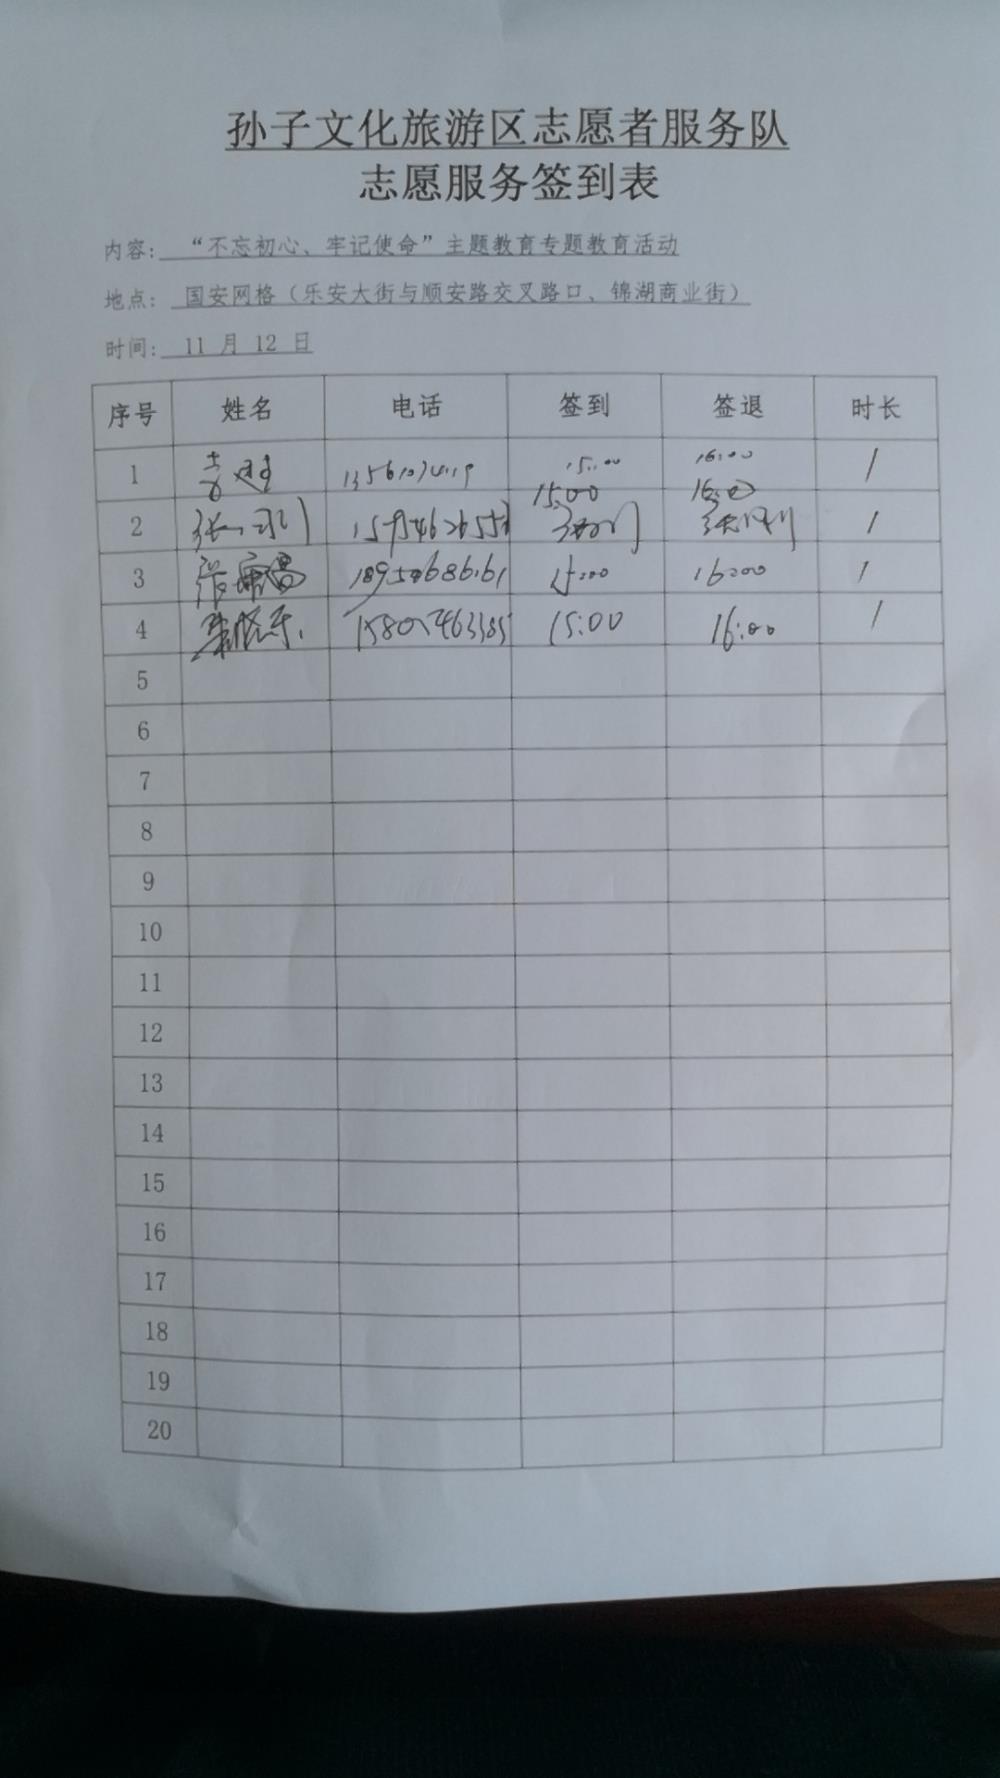 孙子文化旅游区志愿者服务队
志愿服务签到表
内容: “不忘初心、牢记使命”主题教育专题教育活动
地点: 国安网格（乐安大街与顺安路交叉路口、锦湖商业街）
时间: 11 月 12 日
序号 姓名 电话 签到 签退 时长
1 15:00 16:00 1
2 15:00 16:00 1
3 15:00 16:00 1
4 15:00 16:00 1
5
6
7
8
9
10
11
12
13
14
15
16
17
18
19
20